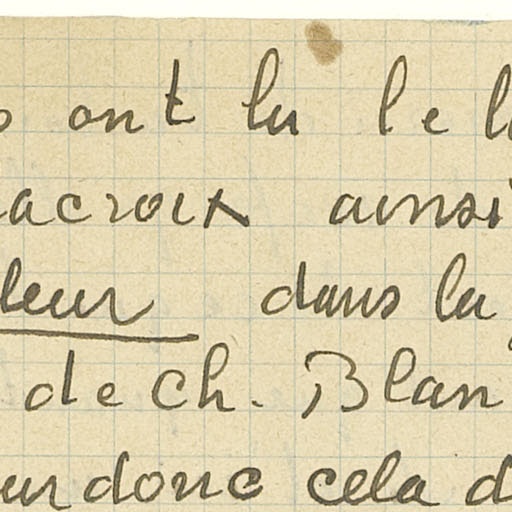 ont lu le
acroix ainsi
leur dans la
de Ch. Blan
donc cela d